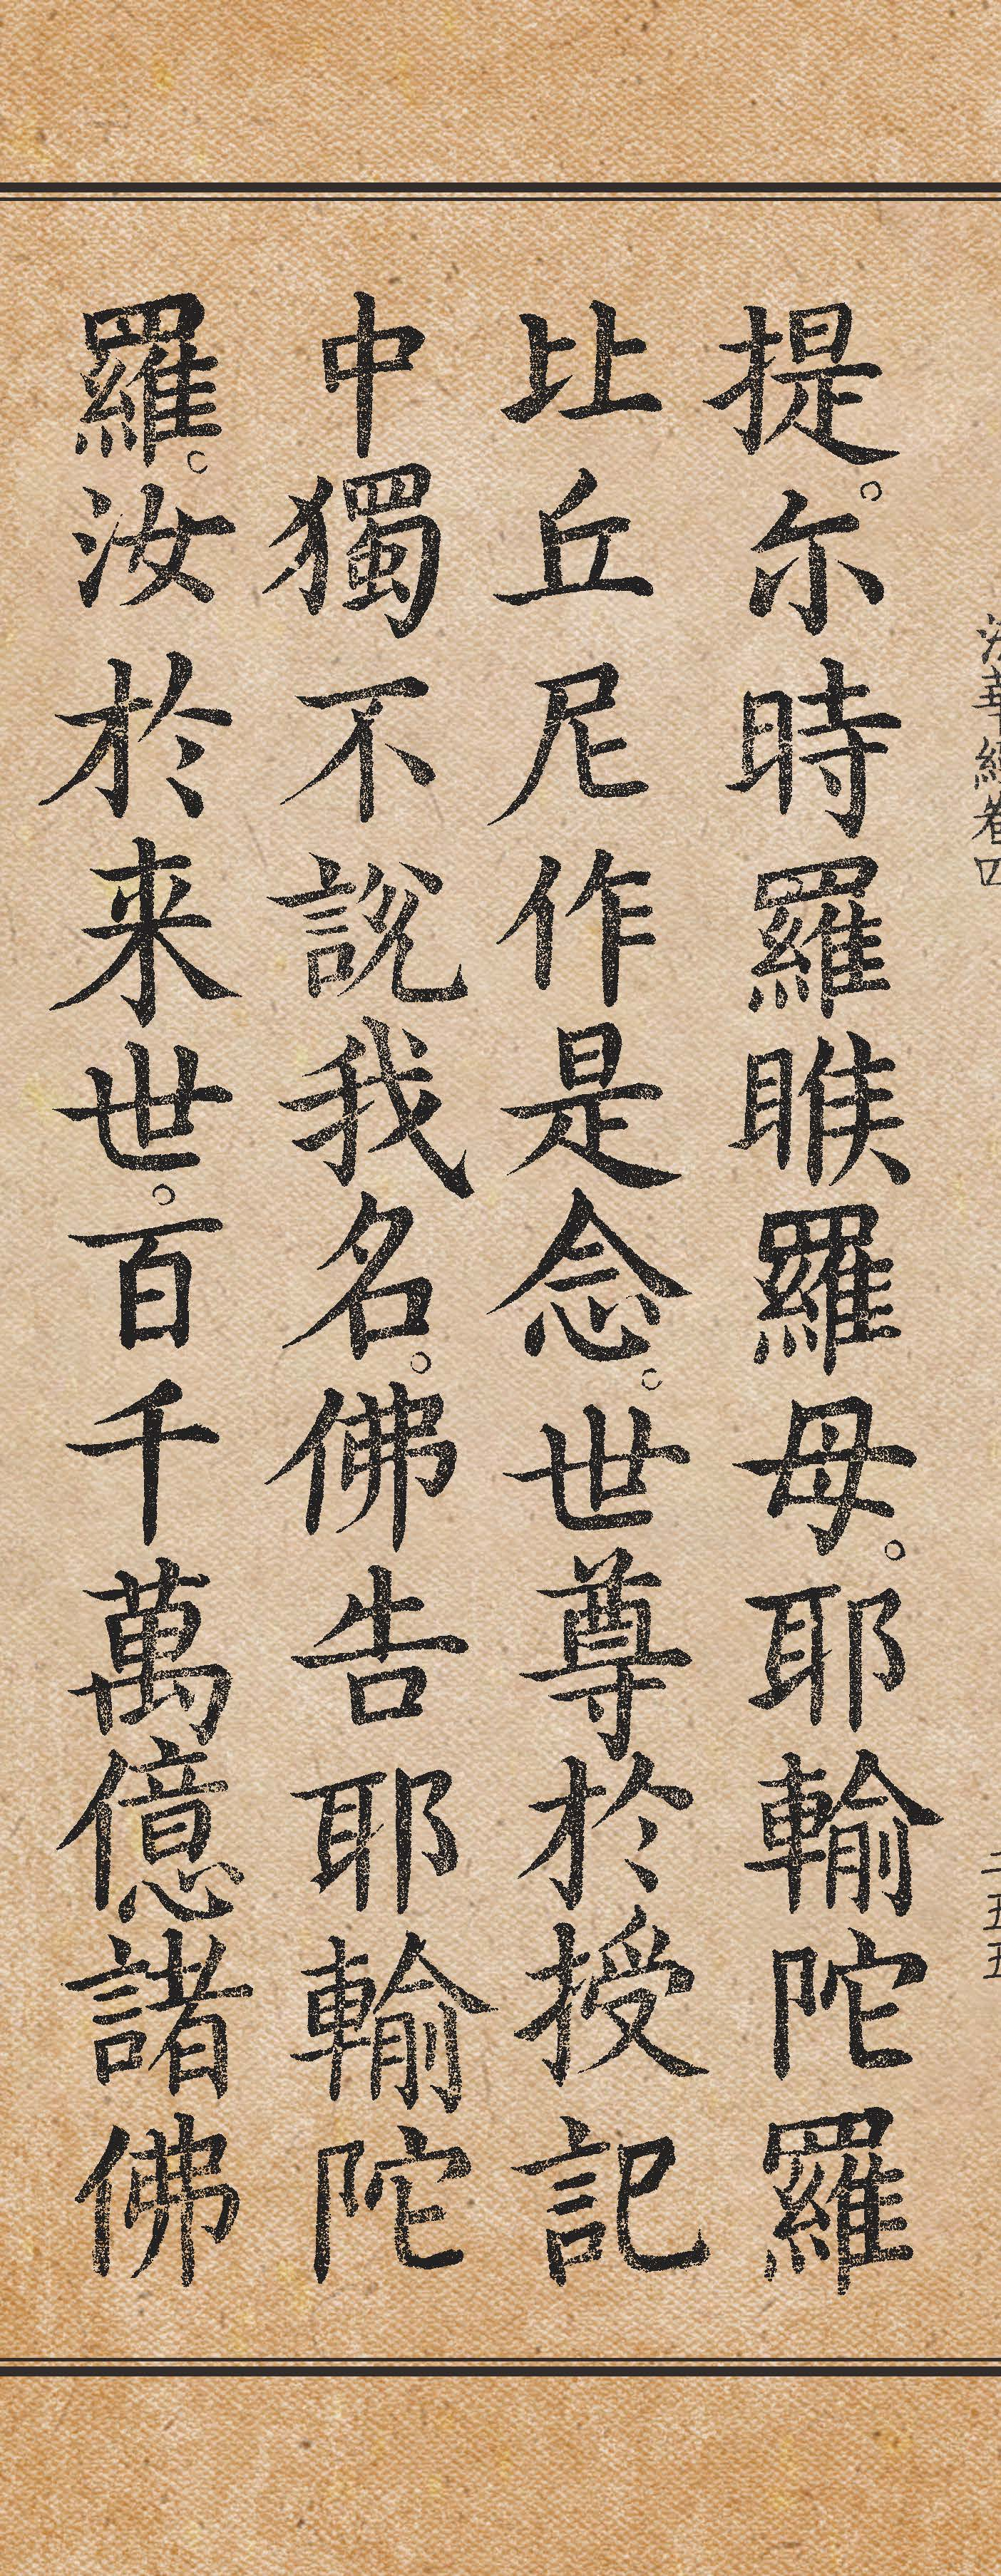 法華經卷四 二五五
提。尓時羅睺羅母。耶輸陀羅
比丘尼作是念。世尊於授記
中獨不說我名。佛告耶輸陀
羅。汝於来世。百千萬億諸佛